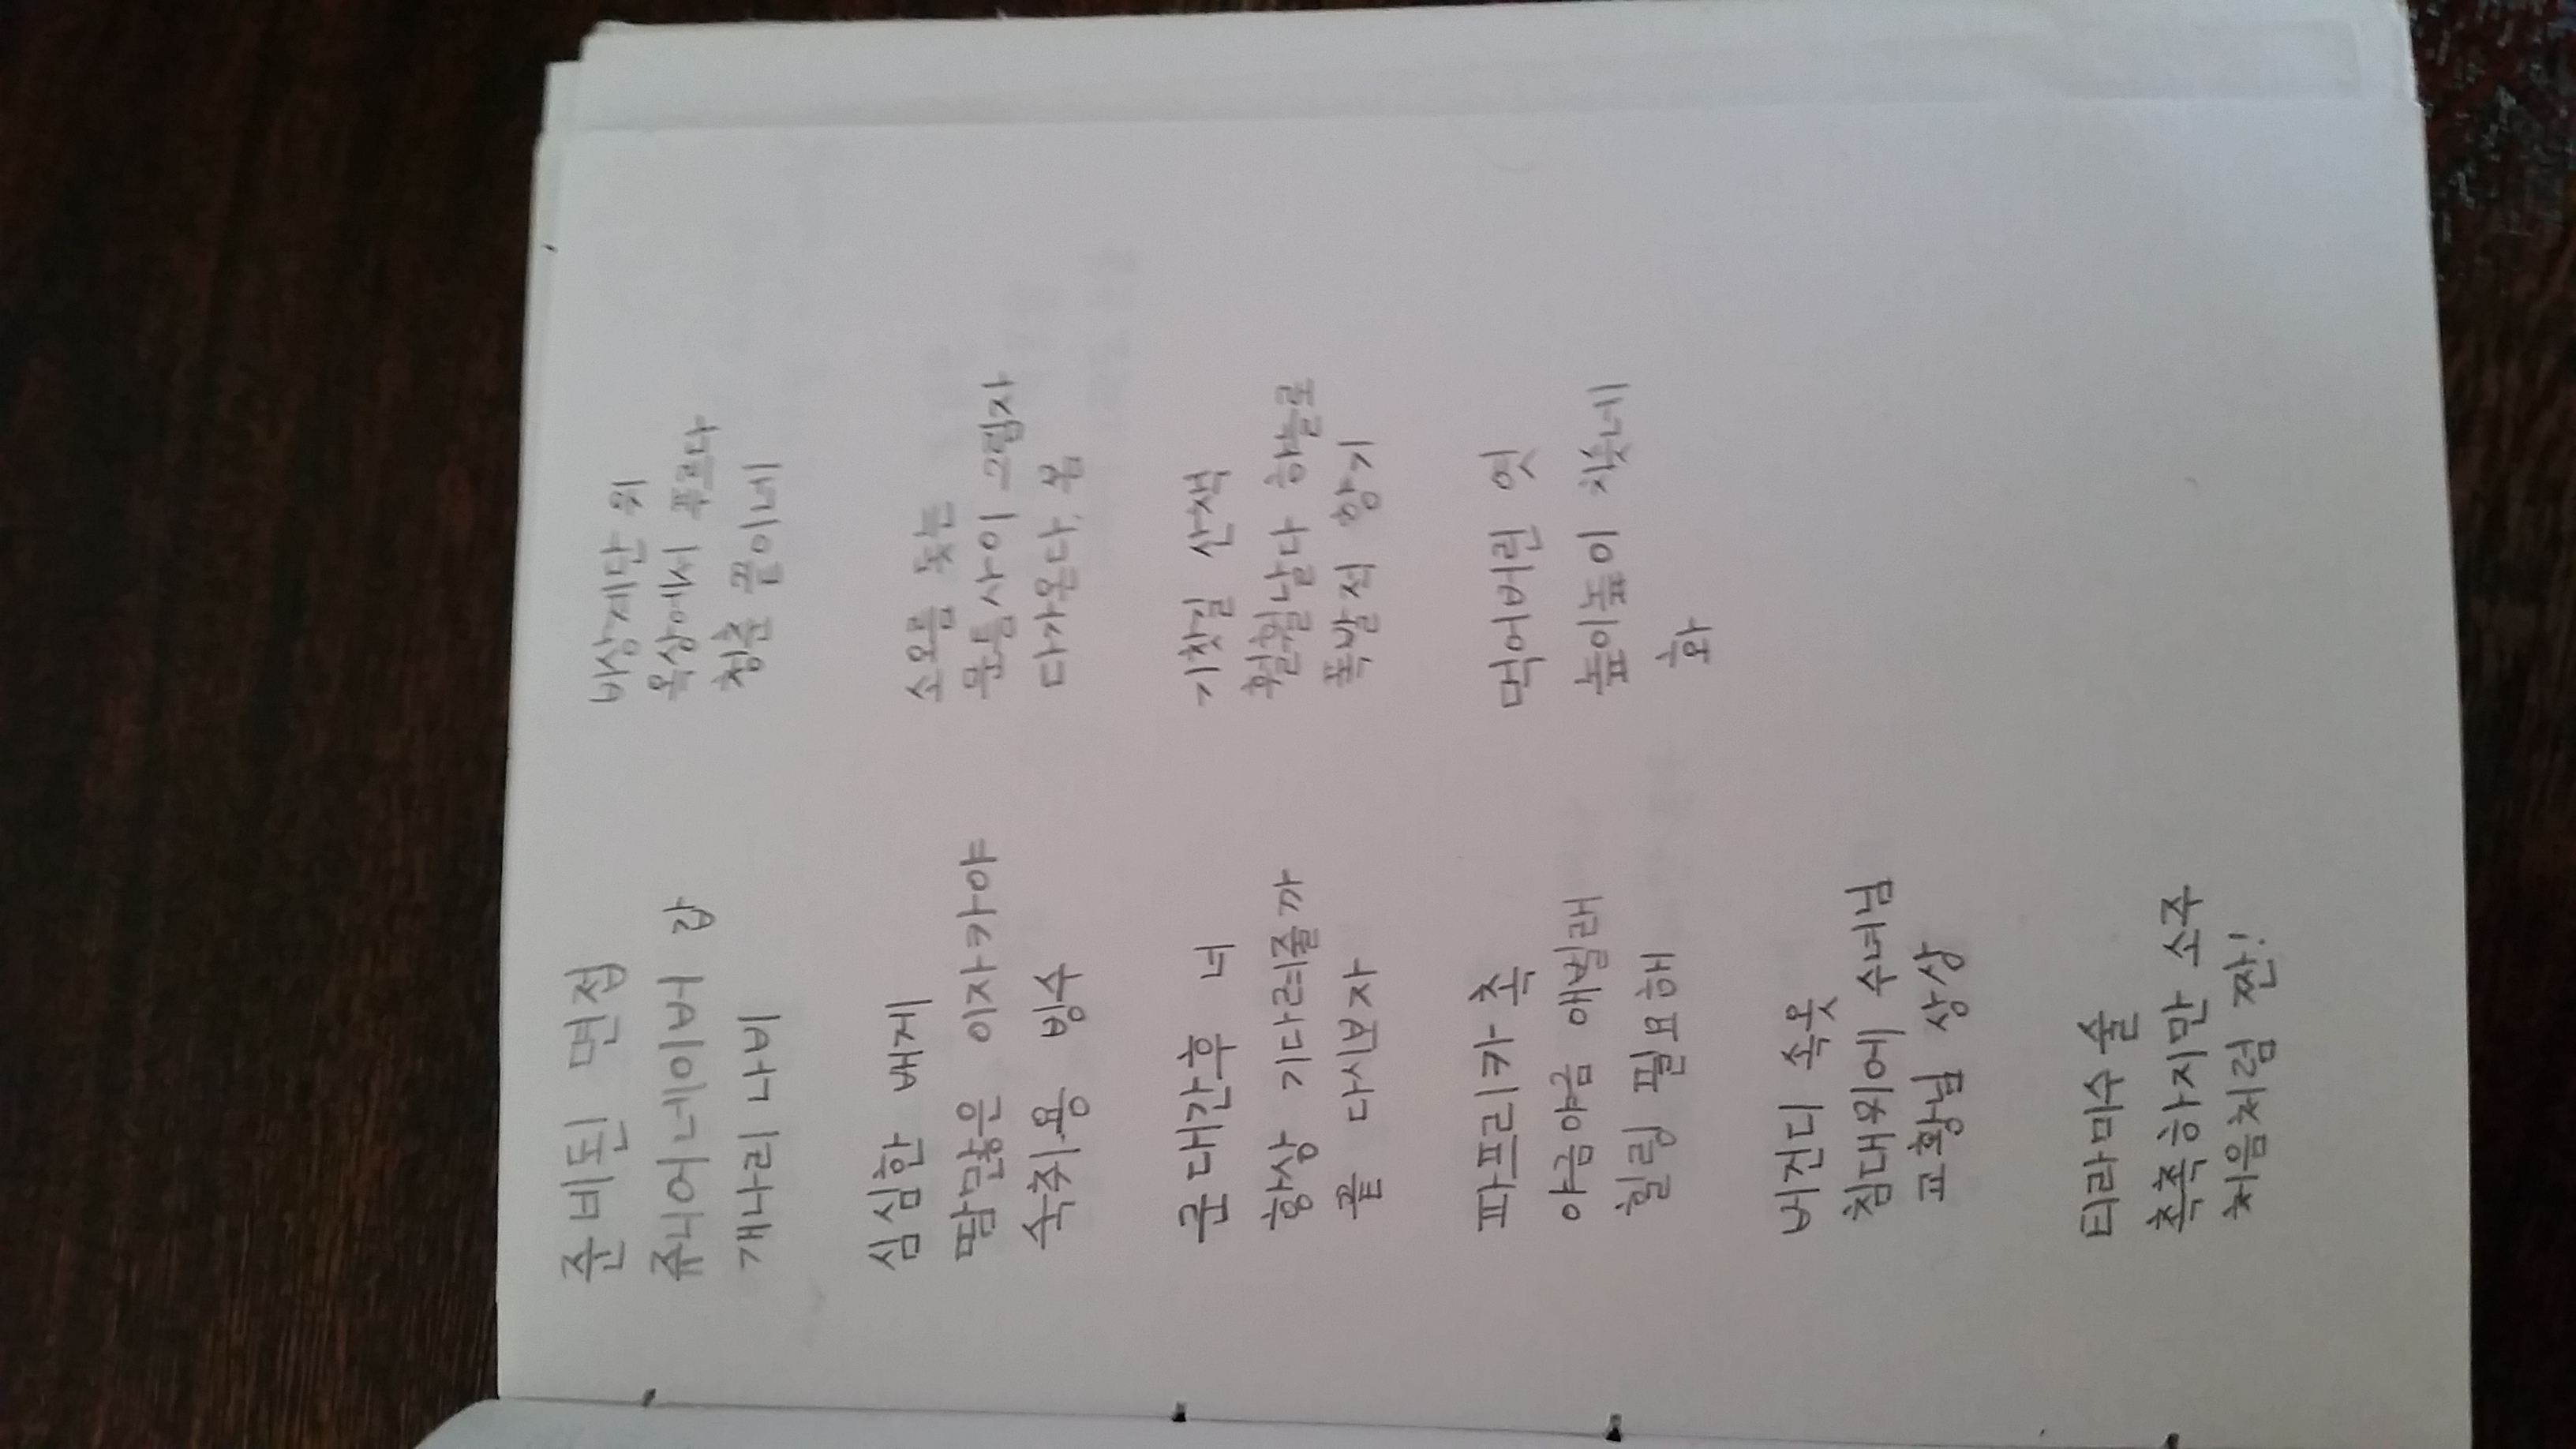 준비된 면접
쥬니어네이버 갑
개나리 나비
심심한 배게
땀많은 이자카야
숙취용 빙수
군대간후 너
항상 기다려줄까
끝 다시보자
파프리카 촉
야금야금 애벌래
힐링 필요해
버건디 속옷
침대위에 수녀님
교황님 상상
티라미수 술
촉촉하지만 소주
처음처럼 짠!
비상계단 위
옥상에서 푸르다
청춘 끝이네
소오름 돛는
문틈사이 그림자
다가온다, 봄
기찻길 산책
훨훨날다 하늘로
폭발적 향기
먹어버린 엿
높이높이 치솟네
화